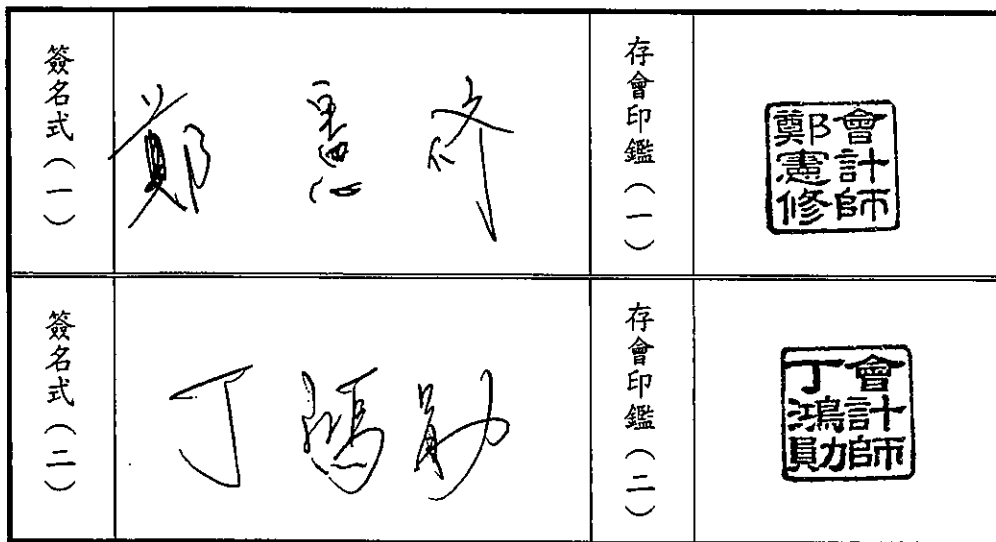 簽名式（一）
鄭憲修
存會印鑑（一）
會計師
鄭憲修
簽名式（二）
丁鴻勛
存會印鑑（二）
會計師
丁鴻勛